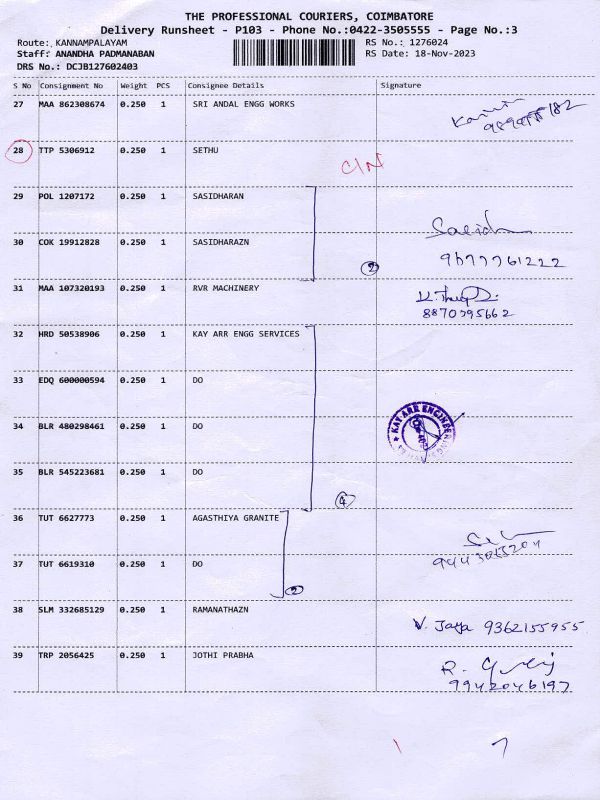 THE PROFESSIONAL COURIERS, COIMBATORE
Delivery Runsheet - P103 - Phone No.:0422-3505555 - Page No.:3
Route: KANNAMPALAYAM RS No.: 1276024
Staff: ANANDHA PADMANABAN RS Date: 18-Nov-2023
DRS No.: DCJB127602403
S No Consignment No Weight PCS Consignee Details Signature
27 MAA 862308674 0.250 1 SRI ANDAL ENGG WORKS
28 TTP 5306912 0.250 1 SETHU
C/N
29 POL 1207172 0.250 1 SASIDHARAN
30 COK 19912828 0.250 1 SASIDHARAZN
2 9677761222
31 MAA 107320193 0.250 1 RVR MACHINERY
8870795662
32 HRD 50538906 0.250 1 KAY ARR ENGG SERVICES
33 EDQ 600000594 0.250 1 DO
34 BLR 480298461 0.250 1 DO
KAY ARR ENGINEERING
35 BLR 545223681 0.250 1 DO
4
36 TUT 6627773 0.250 1 AGASTHIYA GRANITE
37 TUT 6619310 0.250 1 DO
2
38 SLM 332685129 0.250 1 RAMANATHAZN
V. Jaya 9362155955
39 TRP 2056425 0.250 1 JOTHI PRABHA
9942046197